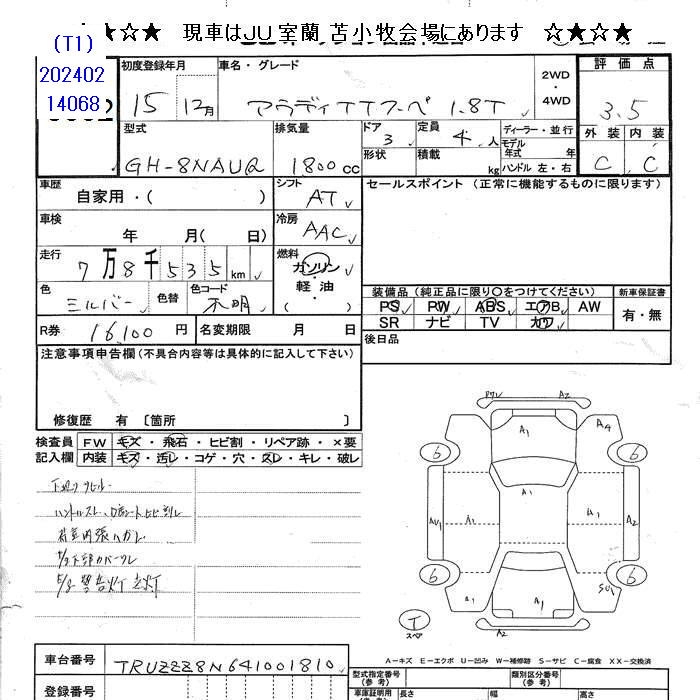 ★☆★ 現車はJU室蘭 苫小牧会場にあります ☆★☆★
(T1)
202402
14068
初度登録年月
車名・グレード
2WD
・
4WD
評価点
15 12月
アウディTTクーペ 1.8T
3.5
型式
排気量
ドア
定員
ディーラー・並行
外装 内装
GH-8NAUQ
1800cc
3
4人
モデル
年式 年
C C
形状
積載 kg
ハンドル 左・右
車歴
自家用・( )
シフト
AT
セールスポイント (正常に機能するものに限ります)
車検
年 月( 日)
冷房
AAC
走行
7万8千535km
燃料
ガソリン
・
軽油
( )
色
シルバー
色替
色コード
不明
装備品(純正品に限り○をつけてください)
新車保証書
PS PW ABS エアB AW
有・無
SR ナビ TV カワ
R券 16,100円
名変期限 月 日
後日品
注意事項申告欄(不具合内容等は具体的に記入して下さい)
修復歴 有 〔箇所 〕
検査員 FW キズ・飛石・ヒビ割・リペア跡・×要
記入欄 内装 キズ・汚レ・コゲ・穴・スレ・キレ・破レ
ワレ A2
A1 A4
6 6
A1
AU1 A1 A1 A2
6 6
A2 A1 SU1
A1
T
スペア
A2
A-キズ E-エクボ U-凹み W-補修跡 S-サビ C-腐食 XX-交換済
車台番号
TRUZZZ8N641001810
登録番号
型式指定番号
(参考)
類別区分番号
(参考)
車庫証明用
(参考)
長さ 幅 高さ